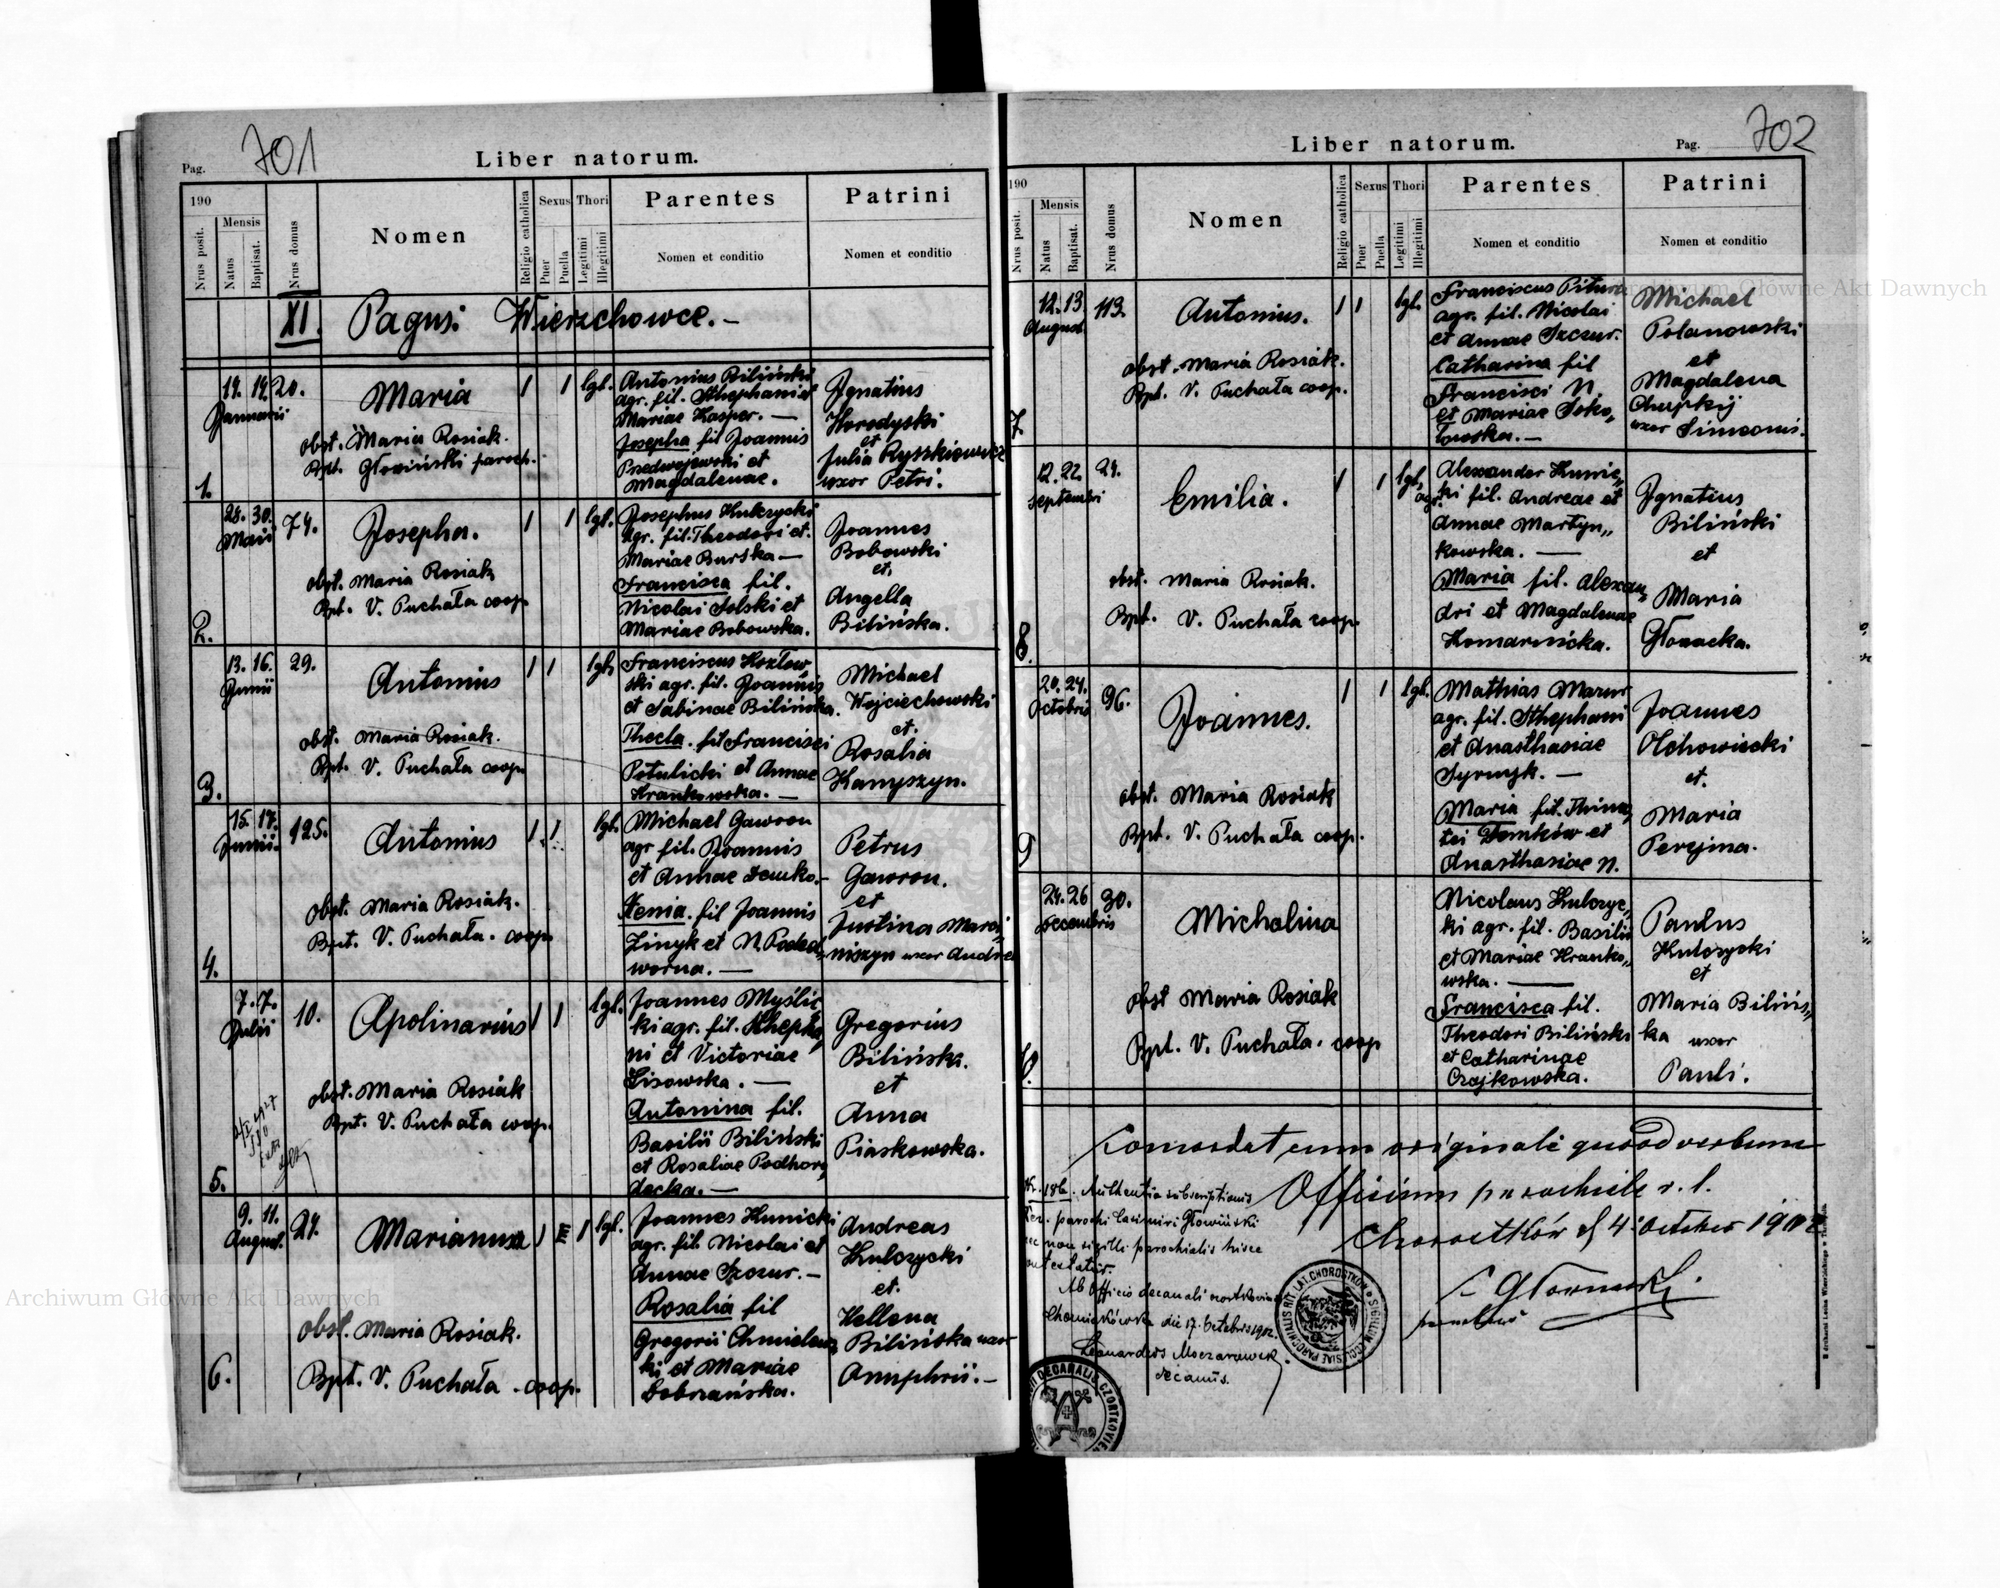 Pag. 701
Liber natorum.
190
Nrus posit.
Mensis
Natus
Baptisat.
Nrus domus
Nomen
Religio catholica
Sexus
Puer
Puella
Thori
Legitimi
Illegitimi
Parentes
Nomen et conditio
Patrini
Nomen et conditio
XI. Pagus: Wierzchowce. —
1.
19. 19. 20.
Januarii
Maria
1 1 lgt.
obst. Maria Rosiak.
Bpt. Głowiński paroch.
Antonius Biliński
agr. fil. Sthephani et
Mariae Kasper. —
Josepha fil Joannis
Przedwojewski et
Magdalenae.
Ignatius
Horodyski
et
Julia Ryszkiewicz
uxor Petri.
2.
28. 30. 74.
Maii
Josepha.
1 1 lgt.
obst. Maria Rosiak
Bpt. V. Puchała coop
Josephus Kulczycki
agr. fil. Theodori et.
Mariae Burska —
Francisca fil.
Nicolai Solski et
Mariae Bobowska.
Joannes
Bobowski
et.
Angella
Bilińska.
3.
13. 16. 29.
Junii
Antonius
1 1 lgt.
obst. Maria Rosiak.
Bpt. V. Puchała coop
Franciscus Kozłow
ski agr. fil. Joannis
et Sabinae Bilińska.
Thecla. fil Francisci
Potulicki et Annae
Hrankowska. —
Michael
Wojciechowski
et.
Rosalia
Kanyszyn.
4.
15. 17. 125.
Junii.
Antonius
1 1 lgt.
obst. Maria Rosiak.
Bpt. V. Puchała. coop
Michael Gawron
agr fil. Joannis
et Annae Demko. —
Xenia. fil Joannis
Linyk et N. Podod„
worna. —
Petrus
Gawron.
et
Justina Marci„
niszyn uxor Andre
5.
7. 7. 10.
Julii
Apolinarius
1 1 lgt.
obst. Maria Rosiak
Bpt. V. Puchała coop.
Joannes Myślic
ki agr. fil. Stepha„
ni et Victoriae
Lisowska. —
Antonina fil.
Basilii Biliński
et Rosaliae Podhoro„
decka. —
Gregorius
Bilińska.
et
Anna
Piaskowska.
6.
9. 11. 24.
August.
Marianna
1 1 lgt.
obst. Maria Rosiak.
Bpt. V. Puchała. coop.
Joannes Kunicki
agr. fil. Nicolai et
Annae Szczur. —
Rosalia fil
Gregorii Chmielews„
ki et Mariae
Dobrzańska.
Andreas
Kulczycki
et.
Hellena
Bilińska uxor
Amphrii. —
Liber natorum.
Pag. 702
190
Nrus posit.
Mensis
Natus
Baptisat.
Nrus domus
Nomen
Religio catholica
Sexus
Puer
Puella
Thori
Legitimi
Illegitimi
Parentes
Nomen et conditio
Patrini
Nomen et conditio
7.
12. 13. 113.
August
Antonius.
1 1 lgt.
obst. Maria Rosiak.
Bpt. V. Puchała coop.
Franciscus Pitura
agr. fil. Nicolai
et Annae Szczur.
Catharina fil
Francisci N.
et Mariae Soko„
łowska. —
Michael
Polanowski
et
Magdalena
Chupkij
uxor Simeonis.
8.
12. 22. 24.
Septembri
Emilia.
1 1 lgt.
obst. Maria Rosiak.
Bpt. V. Puchała coop.
Alexander Kunic„
agr. ki fil. Andreae et
Annae Martyn„
kowska. —
Maria fil. Alexan„
dri et Magdalenae
Komarnicka.
Ignatius
Biliński
et
Maria
Głowacka.
20. 24. 96.
Octobris
Joannes.
1 1 lgt.
obst. Maria Rosiak
Bpt. V. Puchała coop.
Mathias Mazur
agr. fil. Sthephani
et Anasthasiae
Syrnyk. —
Maria fil. Thimo„
tei Domków et
Anasthasiae N.
Joannes
Olchowiecki
et.
Maria
Perejma.
24. 26 30.
Decembris
Michalina
obst Maria Rosiak
Bpt. V. Puchała. coop
Nicolaus Kulczyc„
ki agr. fil. Basilii
et Mariae Hranko„
wska. —
Francisca fil.
Theodori Biliński
et Catharinae
Czajkowska.
Paulus
Kulczycki
et
Maria Bilińs„
ka uxor
Pauli.
Concordat cum originali quoad verbum
Officium parochiale r. l.
Chorostków d 4 October 1902
Nr. 186. Authentia subscriptionis
parochi Casimiri Głowiński
nec non sigilli parochialis hisce
contestatur.
Ab Officio decanali
die 17. Octobris 1902.
decanus.
SIGILLUM ECCLESIAE PAROCHIALIS RIT. LAT. CHOROSTKÓW
DECANALIS CZORTKOVIEN
Archiwum Główne Akt Dawnych
Archiwum Główne Akt Dawnych